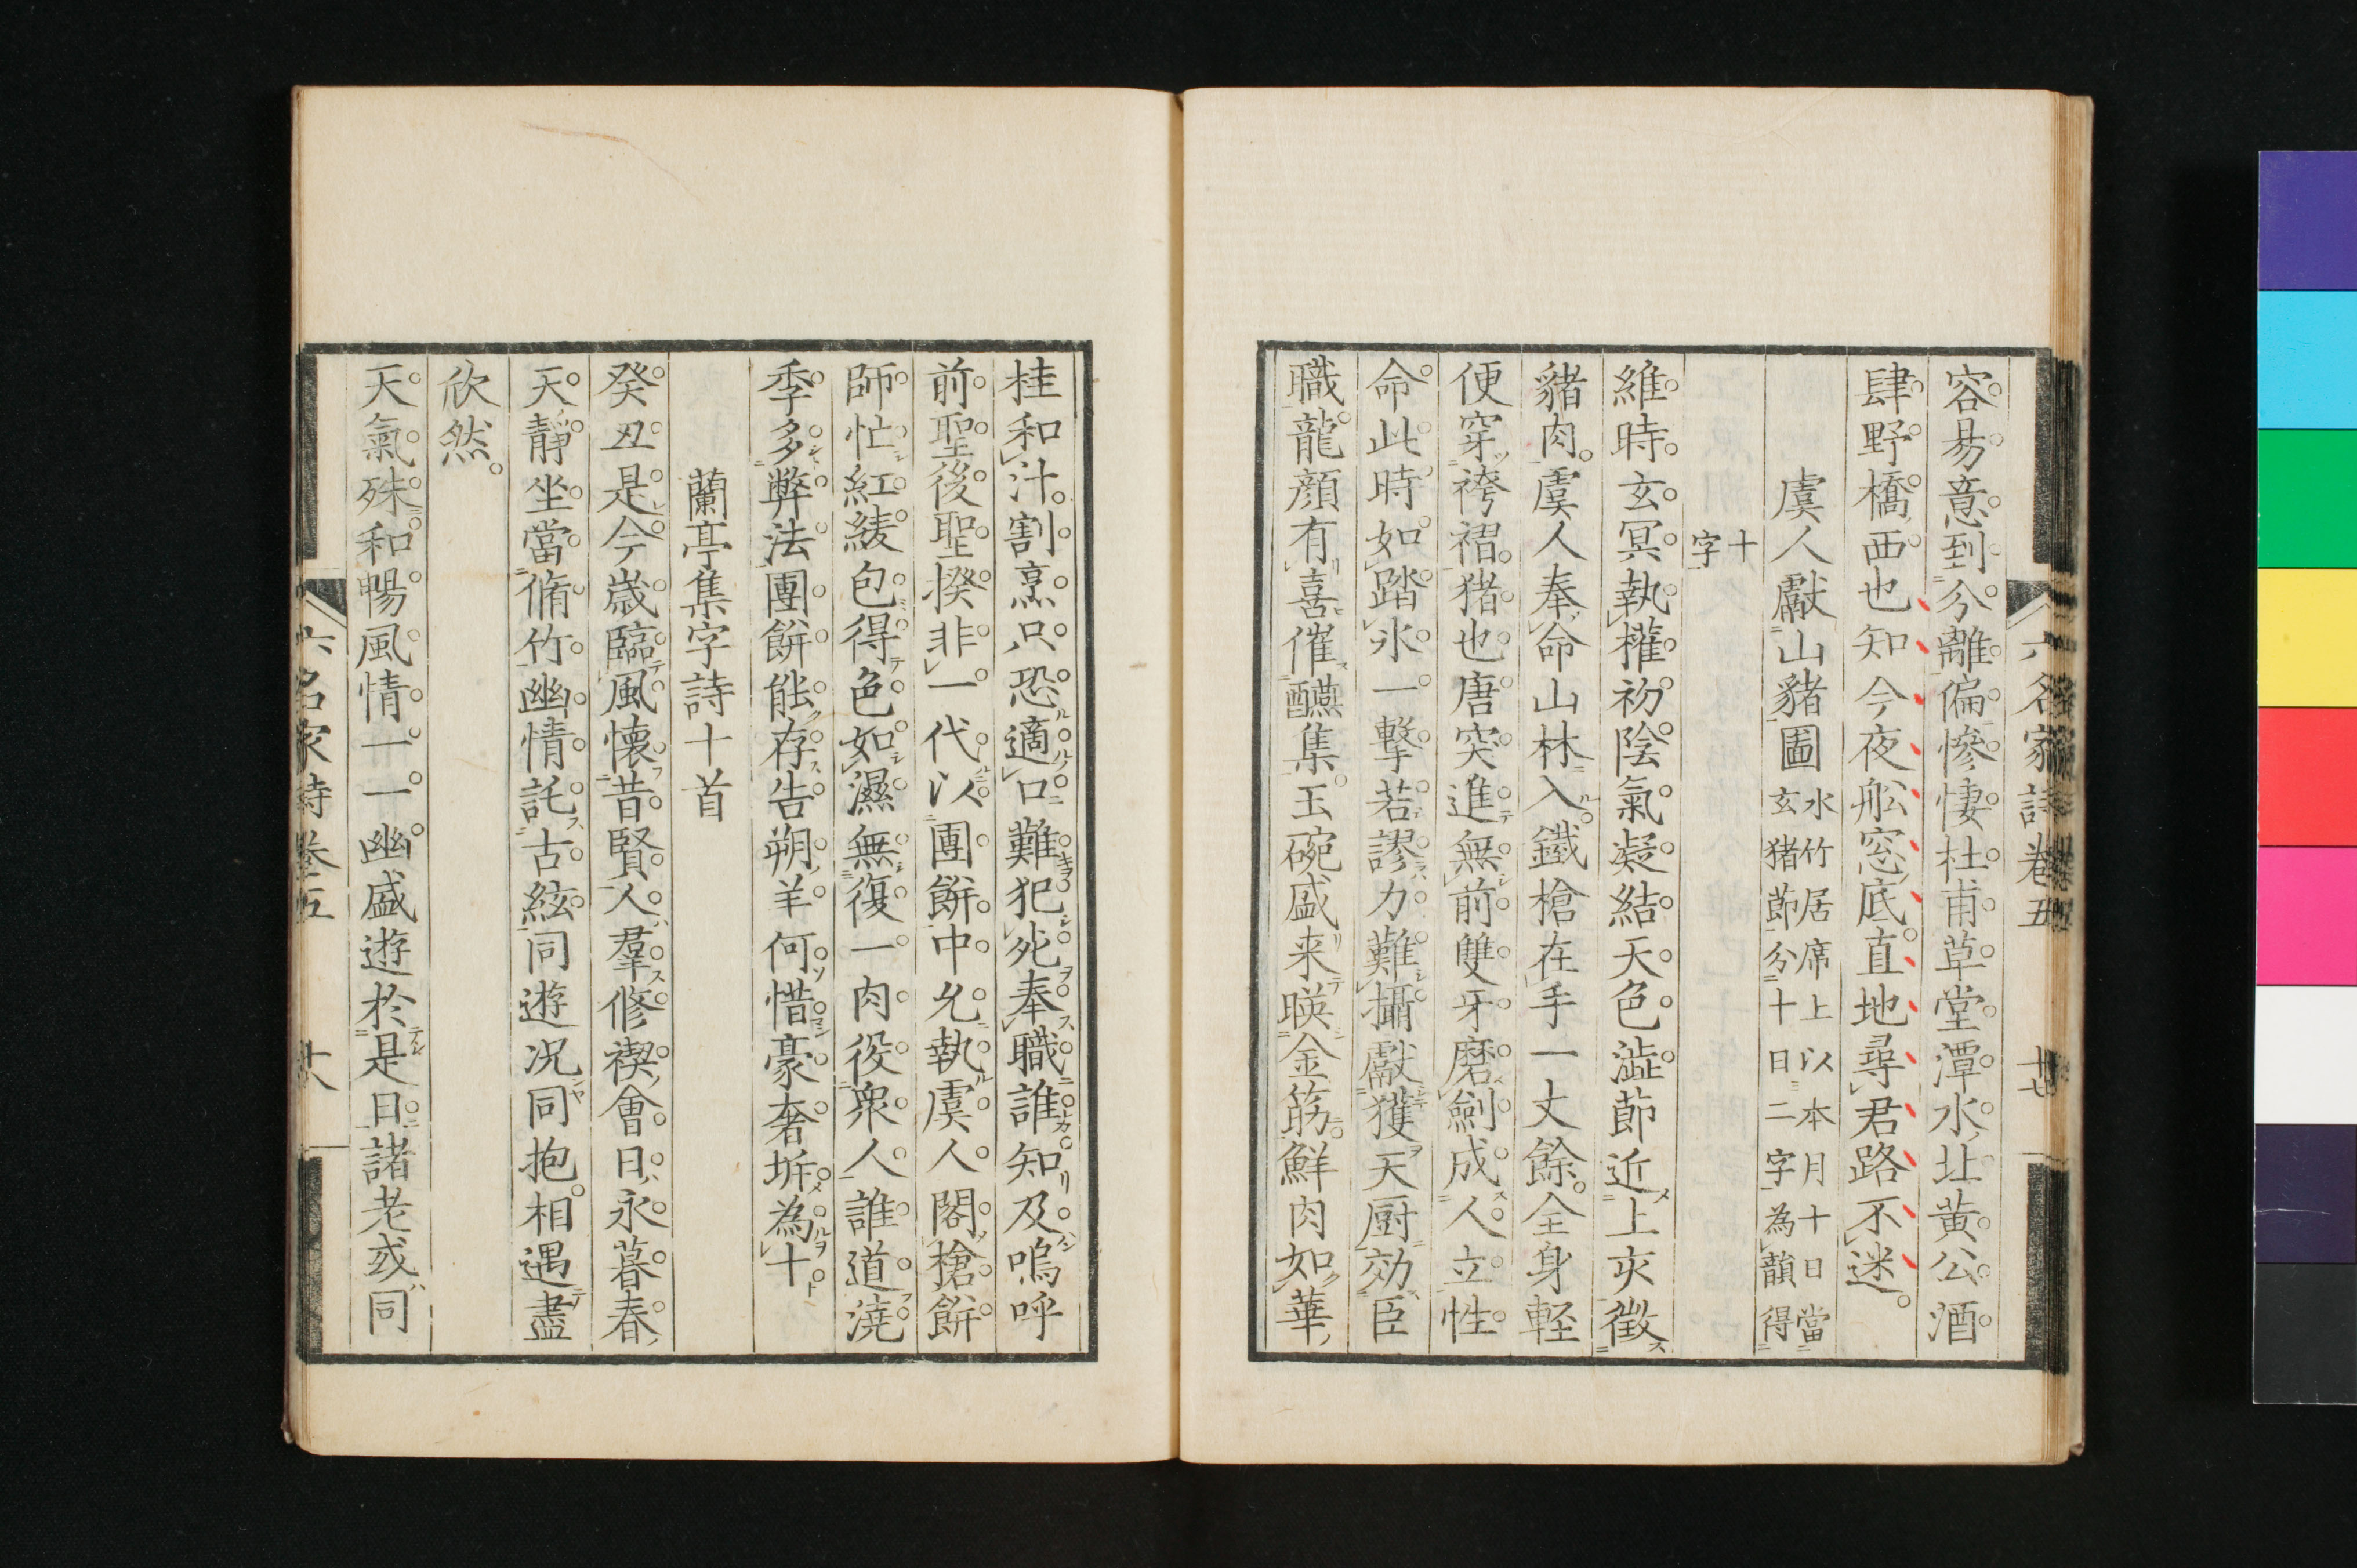 六名家詩卷五　十七
容易意到兮離偏惨悽杜甫草堂潭水北黄公酒
肆野橋西也知今夜舩窓底直地尋君路不迷
虞人獻山豬圖
水竹居席上以本月十日當
玄猪節分十日二字為韻得
十
字
維時玄冥執權初陰氣凝結天色澁節近上亥徵
豬肉虞人奉命山林入鐵槍在手一丈餘全身軽
便穿袴褶猪也唐突進無前雙牙磨劍成人立性
命此時如踏氷一撃若謬力難攝獻獲天厨効臣
職龍顔有喜催醼集玉碗盛来暎金筯鮮肉如華
桂和汁割烹只恐適口難犯死奉職誰知及嗚呼
前聖後聖揆非一代以團餅中允執虞人閣槍餅
師忙紅綾包得色如濕無復一肉役衆人誰道澆
季多弊法團餅能存告朔羊何惜豪奢坼為十
蘭亭集字詩十首
癸丑是今歲臨風懐昔賢人羣修禊會日永暮春
天靜坐當脩竹幽情託古絃同遊况同抱相遇盡
欣然
天氣殊和暢風情一一幽盛遊於是日諸老或同
六名家詩卷五　十八